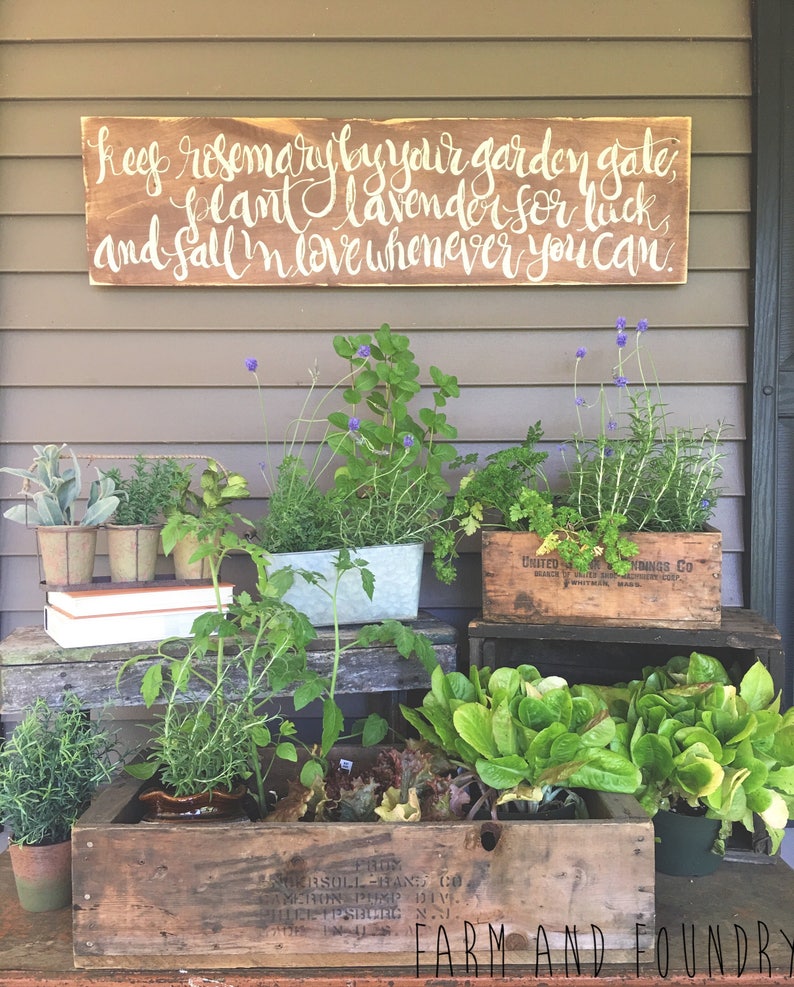 keep rosemary by your garden gate,
plant lavender for luck,
and fall in love whenever you can.
UNITED BINDINGS CO
BRANCH OF UNITED SHOE MACHINERY CORP.
WHITMAN, MASS.
FROM
INGERSOLL-RAND CO.
CAMERON PUMP DIV.
PHILLIPSBURG N.J.
MADE IN U.S.A
FARM AND FOUNDRY